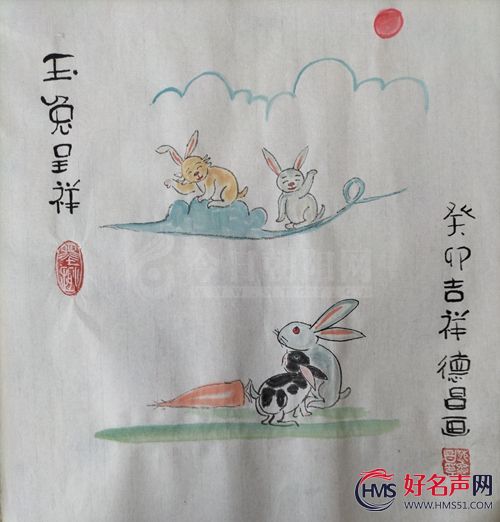 玉兔呈祥
癸卯吉祥德昌画
HMS 好名声网
WWW.HMS51.COM